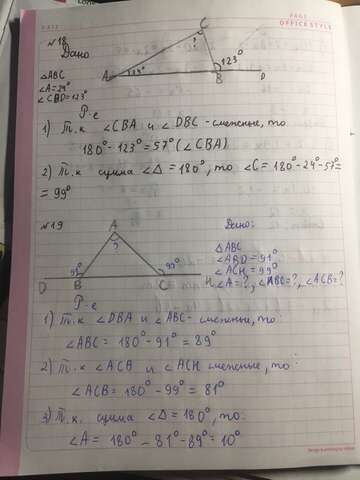 DATE
PAGE
OFFICE STYLE
№18
Дано
△ABC
∠A=24°
∠CBD=123°
A
24°
C
?
B
123°
D
Р-е
1) Т.к ∠CBA и ∠DBC-смежные, то
180°-123°=57°(∠CBA)
2) Т.к сумма ∠△=180°, то ∠C=180°-24°-57°=
=99°
№19
A
?
D
91°
B
C
99°
H
Дано:
△ABC
∠ABD=91°
∠ACH=99°
∠A=?, ∠ABC=?, ∠ACB=?
Р-е
1) Т.к ∠DBA и ∠ABC-смежные, то:
∠ABC= 180°-91°=89°
2) Т.к ∠ACB и ∠ACH смежные, то:
∠ACB= 180°-99°=81°
3) Т.к. сумма ∠△=180°, то:
∠A= 180°-81°-89°=10°